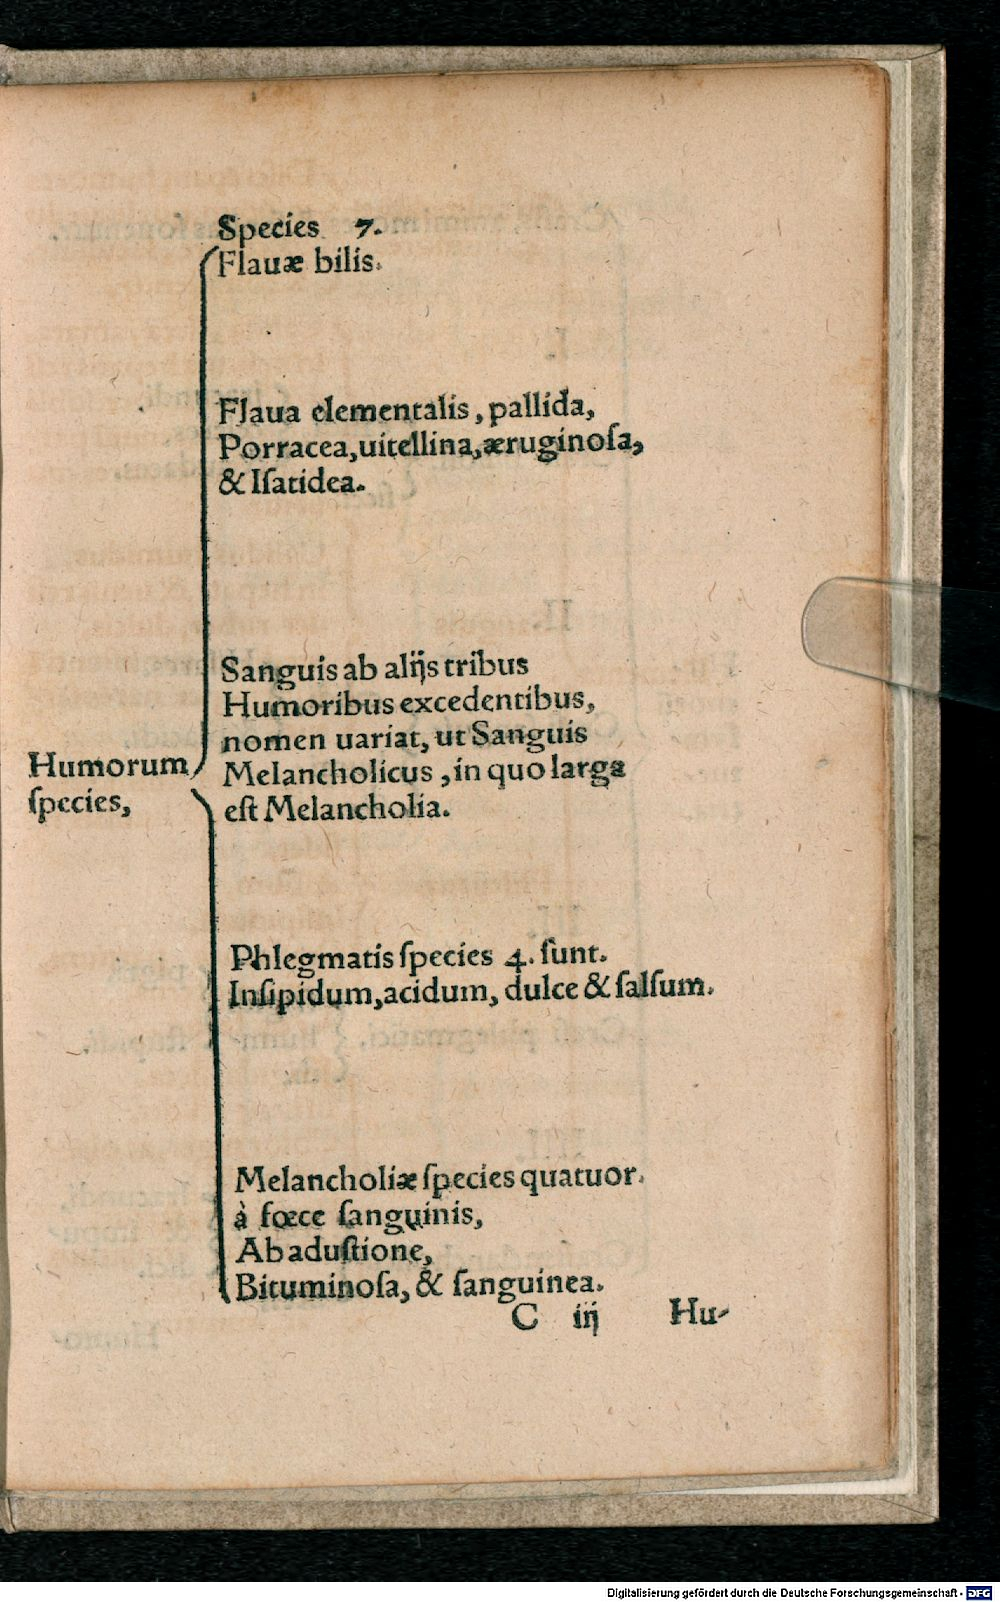 Species 7.
Flauæ bilis.
Flaua elementalis, pallida,
Porracea, uitellina, æruginoſa,
& Iſatidea.
Sanguis ab alijs tribus
Humoribus excedentibus,
nomen uariat, ut Sanguis
Humorum
Melancholicus, in quo larga
ſpecies,
eſt Melancholia.
Phlegmatis ſpecies 4. ſunt.
Inſipidum, acidum, dulce & ſalſum.
Melancholiæ ſpecies quatuor.
à fœce ſanguinis,
Ab aduſtione,
Bituminoſa, & ſanguinea.
C iij Hu-
Digitalisierung gefördert durch die Deutsche Forschungsgemeinschaft - DFG